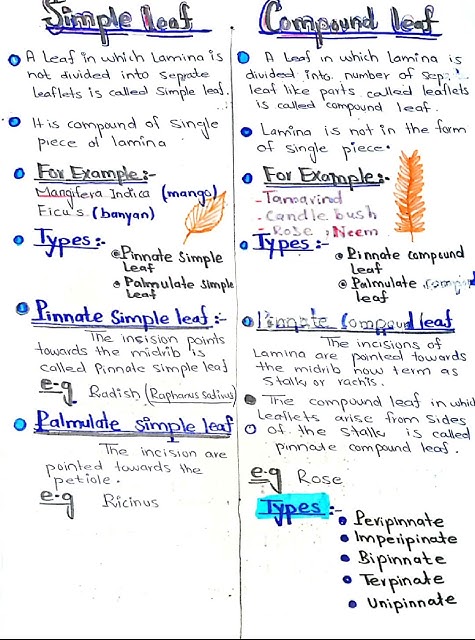 Simple leaf
A Leaf in which Lamina is
not divided into seprate
leaflets is called simple leaf.
It is compound of single
piece of lamina
For Example:-
Mangifera Indica (mango)
Ficu's (banyan)
Types:-
Pinnate Simple
Leaf
Palmulate simple
Leaf
Pinnate simple leaf:-
The incision points
towards the midrib is
called Pinnate simple leaf
e-g Radish (Raphanus sativus)
Palmulate simple leaf
The incision are
pointed towards the
petiole.
e-g Ricinus
Compound leaf
A Leaf in which lamina is
divided into number of
leaf like parts called leaflets
is called compound leaf.
Lamina is not in the form
of single piece.
For Example:-
- Tamarind
- Candle bush
- Rose, Neem
Types:-
Pinnate compound
leaf
Palmulate compound
leaf
Pinnate Compound leaf
The incisions of
Lamina are pointed towards
the midrib now term as
Stalk or rachis.
The compound leaf in which
Leaflets arise from sides
of the stalk is called
pinnate compound leaf.
e-g Rose
Types:-
Peripinnate
Imperipinate
Bipinnate
Terpinate
Unipinnate